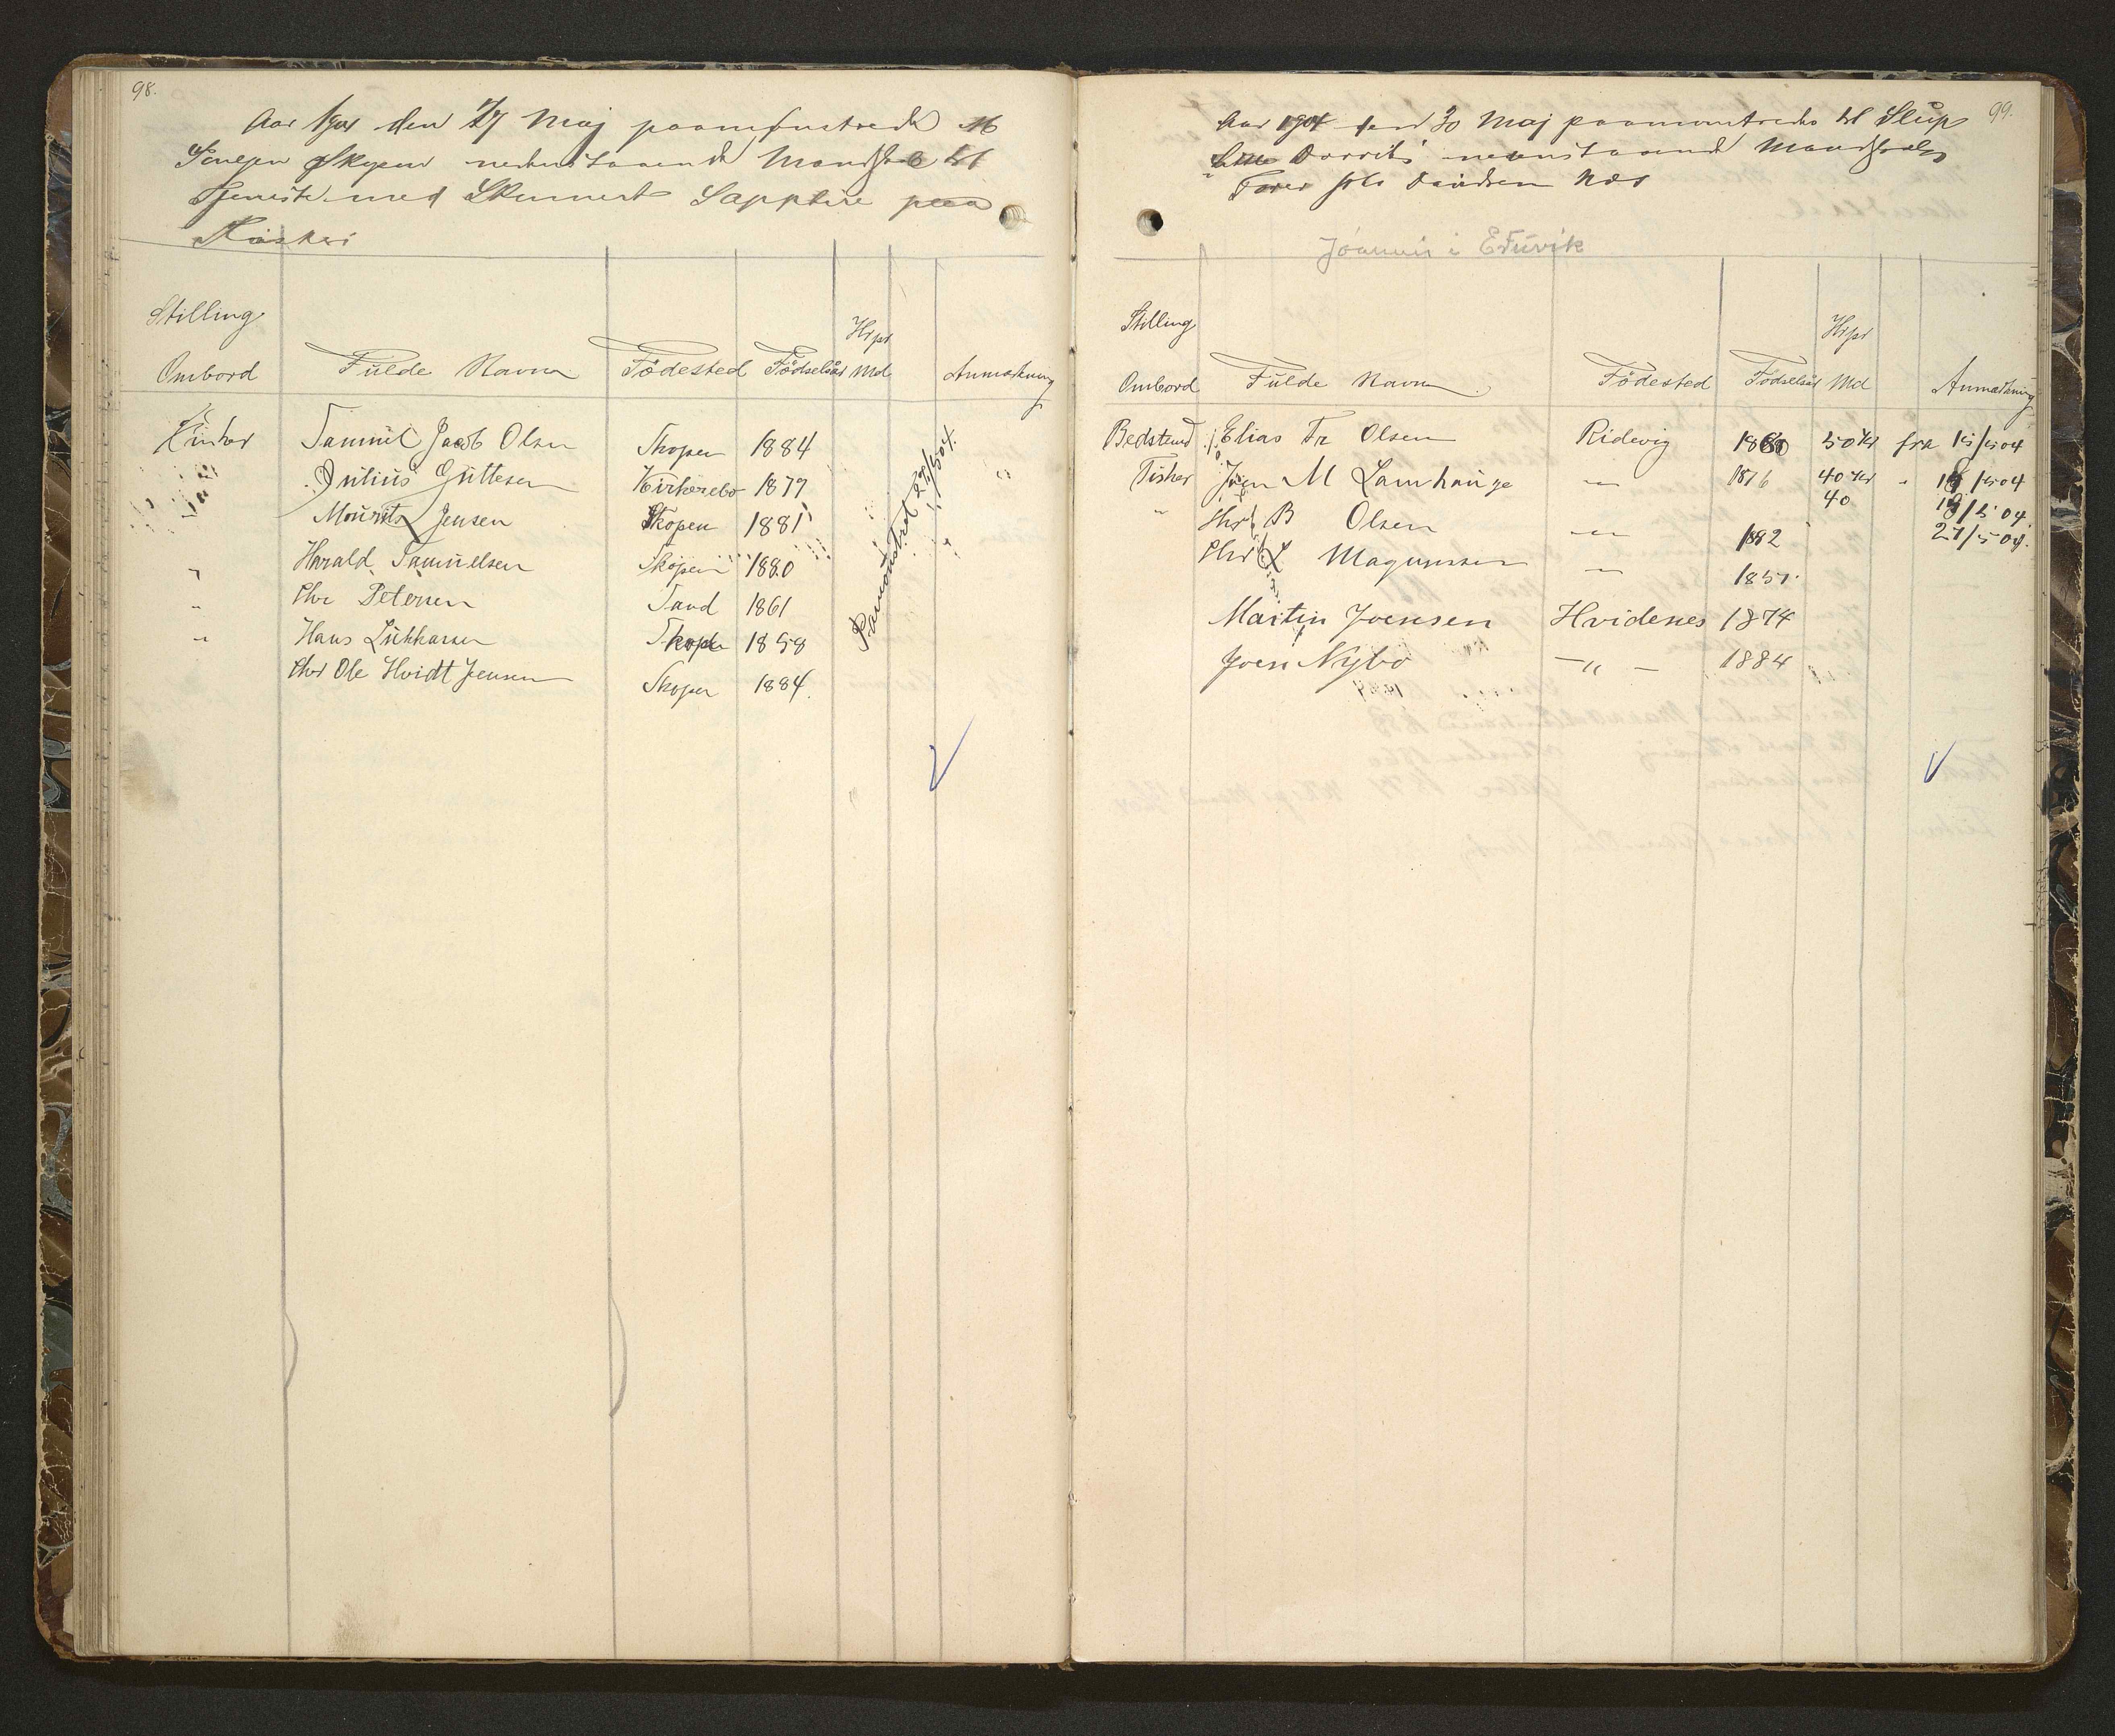 98.
Aar 1904 den 27 Maj paamønstrede
nedenstaaende Mandskab til
Tjeneste med Skonnert Sapphire paa
Fiskeri
Stilling Ombord Fulde Navn Födested Födselsår Hrpr Md Anmærkning
Fisker Samuel Jacob Olsen Skopen 1884
Julius Guttesen Kirkerebo 1879 "
Mourits Jensen Skopen 1881
" Harald Samuelsen Skopen 1880 "
" Chr Petersen Sand 1861
" Hans Lükkarsen Skopen 1858
Chr Ole Hvidt Jensen Skopen 1884.
Paamönstret 27/5 04.
99.
Aar 1904 den 30 Maj paamønstredes til Slup
Dorrits nedenstaaende Mandskab
Fører Joh Davidsen Nes
Jóannis i Eduvik
Stilling Ombord Fulde Navn Födested Födselsår Hrpr Md Anmærkning
Bedstemd Elias Fr Olsen Ridevig 1860 50 Kr fra 15/5 04
Fisker Joen M Lamhauge — " — 1876 40 Kr " 18/5 04
" Chr B Olsen — " — 1882 40 18/5 04.
Chr L Magnussen — " — 1857. 27/5 04.
Martin Joensen Hvidenes 1874
Joen Nybo — " — 1884